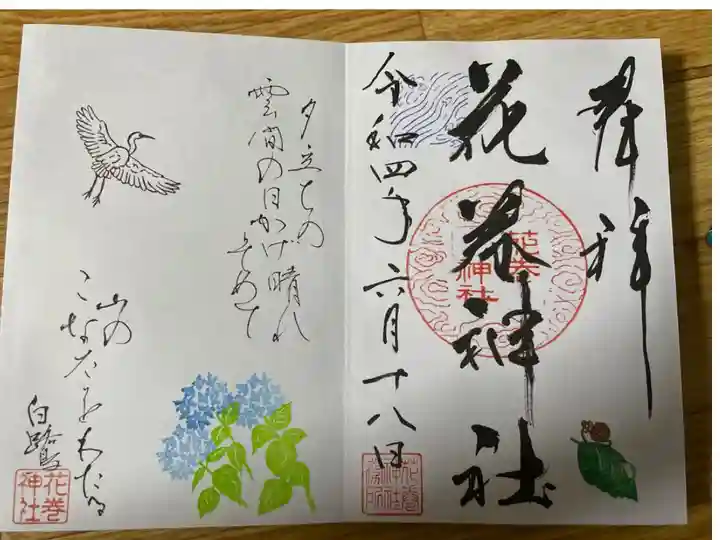 奉拝
花巻神社
花巻神社
令和四年六月十八日
夕立ちの
雲間の日かげ晴れ
そめて
山の
こなたをわたる
白鷺
花巻神社